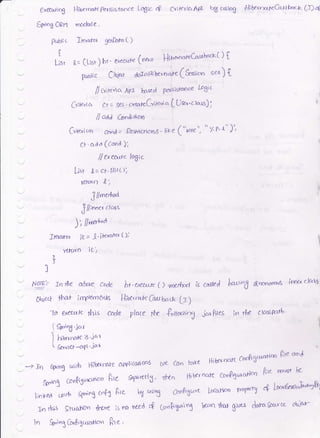 Executing Hibernate Persistence Logic of Criteria API by using HibernateCallback (I) of
Spring ORM module.
public Iterator getData()
{
List l = (List) ht.execute (new HibernateCallback() {
public Object doInHibernate (Session ses) {
// criteria API based persistence logic
Criteria ct = ses.createCriteria (User.class);
// add condition
Criterion cond = Restrictions.like (
ct.add (cond);
// execute logic
List l = ct.list();
return l;
} // method
} // inner class
); // method
Iterator it = l.iterator();
return it;
}
}
NOTE: In the above code ht.execute () method is called having anonymous inner class
object that implements HibernateCallback (I)
To execute this code place the following jar files in the classpath.
Spring.jar
hibernate
→ In spring with Hibernate applications we can take Hibernate Configuration file and
Spring Configuration file separately, then Hibernate Configuration file must be
linked with Spring cnfg file by using configure Location property of
In this situation there is no need of configuring bean that gives dataSource object
in Spring Configuration file.